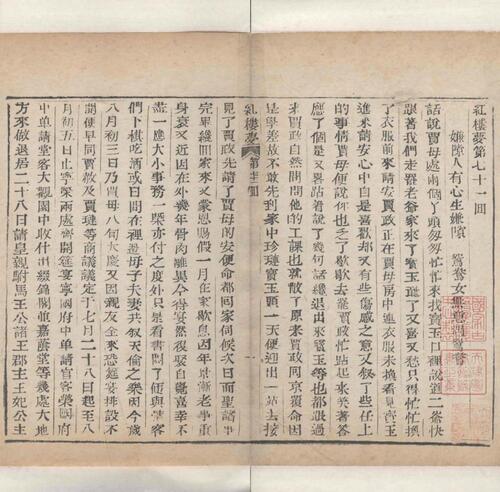 紅樓夢第七十一回
嫌隙人有心生嫌隙　鴛鴦女無意遇鴛鴦
話說賈母處兩個丫頭匆匆忙忙來找寶玉口裡說道二爺快
跟著我們走罷老爺家來了寶玉聽了又喜又愁只得忙忙換
了衣服前來請安賈政正在賈母房中連衣服未換看見寶玉
進來請安心中自是喜歡却又有些傷感之意又叙了些任上
的事情賈母便說你也乏了歇歇去罷賈政忙站起來笑着答
應了個是又畧站着說了幾句話纔退出來寶玉等也都跟過
來賈政自然問問他的工課也就散了原來賈政回京覆命因
是學差故不敢先到家中珍璉寶玉頭一天便迎出一站去接
紅樓夢　第七十一回
見了賈政先請了賈母的安便命都回家伺候次日面聖諸事
完畢纔回家來又蒙恩賜假一月在家歇息因年景漸老事重
身衰又近因在外幾年骨肉離異今得宴然復聚自覺喜幸不
盡一應大小事務一槩亦付之度外只是看書悶了便與清客
們下棋吃酒或日間在裡邊母子夫妻共叙天倫之樂因今歲
八月初三日乃賈母八旬大慶又因親友全來恐筵宴排設不
開便早同賈赦及賈璉等商議議定于七月二十八日起至八
月初五日止寧榮兩處齊開筵宴寧國府中单請官客榮國府
中单請堂客大觀園中收什出綴錦閣並嘉蔭堂等幾處大地
方來做退居二十八日請皇親駙馬王公諸王郡主王妃公主